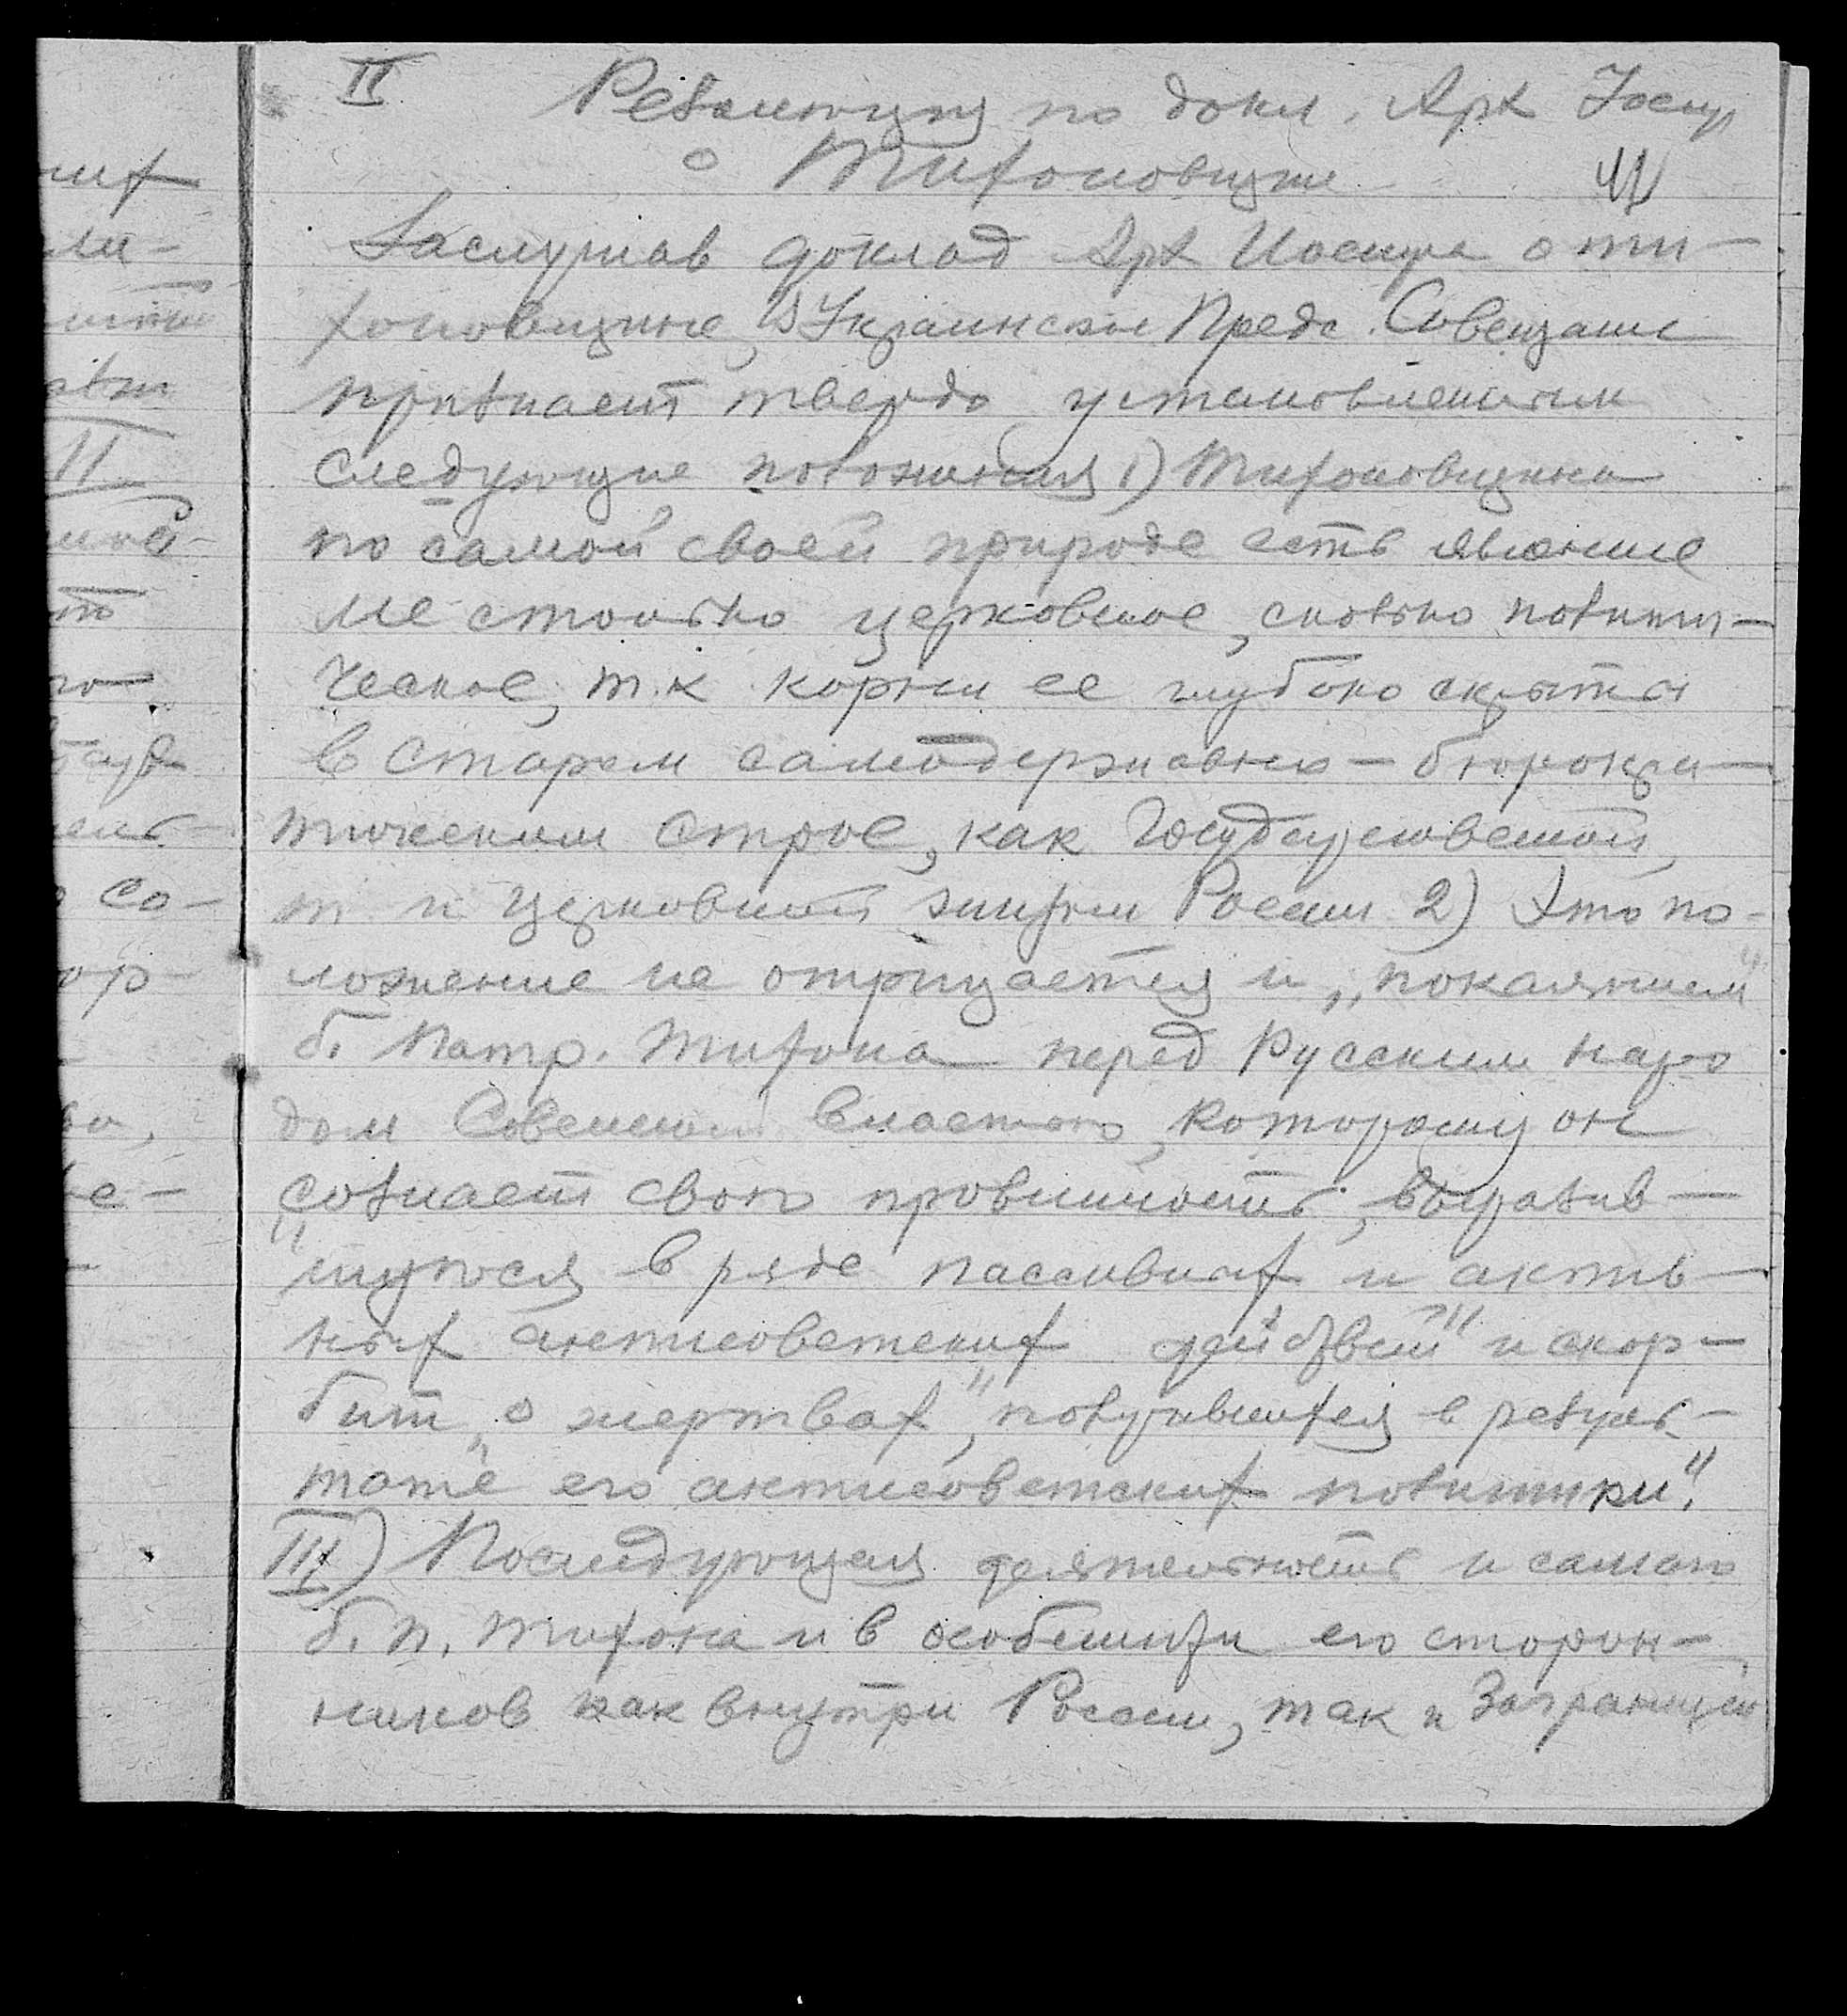 II Резолюция по докл. Арх Иосиф
о Тихоновщине
Заслушав доклад Арх Иосифа о ти-
хоновщине, Украинское Предс. Совещание
признает твердо установленным
следующие положения 1) Тихоновщина
по самой своей природе есть явление
не столько церковное, сколько полити-
ческое, т.к корни ее глубоко скрыты
в старом самодержавно-бюрокра-
тическом строе, как Государственной,
т и церковной жизни России 2) Это по-
ложение не отрицается и „покаянием"
б. Патр. Тихона перед Русским наро
дом Советской властью, которому он
сознает свою провинность, „выразив-
шуюся в ряде пассивных и актив-
ных антисоветских действий" и скор-
бит „о жертвах", получившихся в резуль-
тате его антисоветских политики."
III) Последующая деятельность и самого
б. п. Тихона и в особенности его сторон-
ников как внутри России, так и Заграницей
мих
ли-
II
то
го
со-
ор-
ва,
-е-